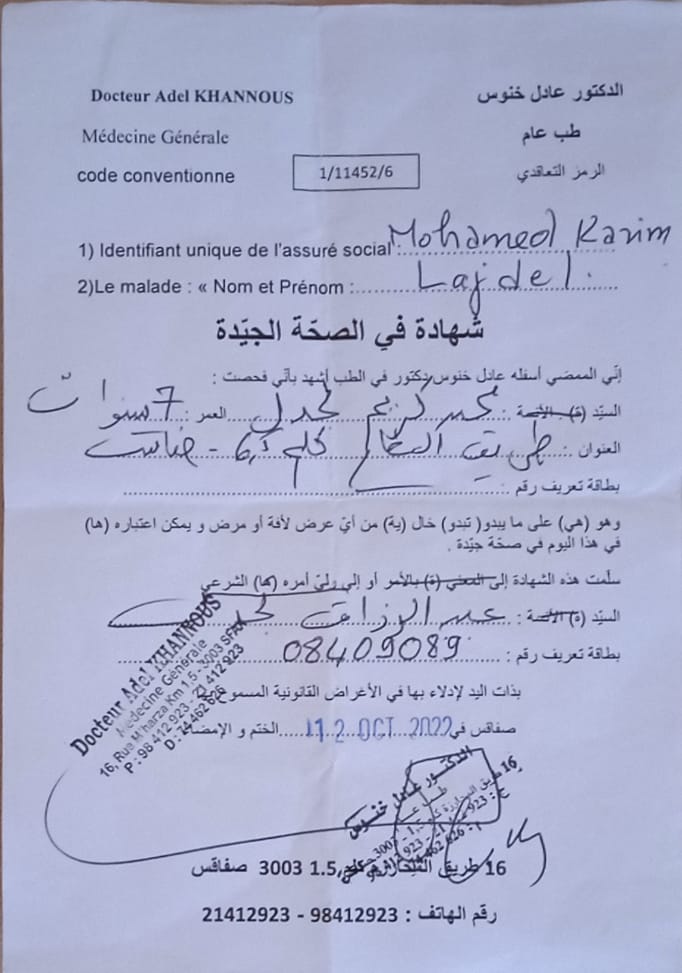 Docteur Adel KHANNOUS
الدكتور عادل خنوس
Médecine Générale
طب عام
code conventionne
1/11452/6
الرمز التعاقدي
1) Identifiant unique de l'assuré social : Mohamed Karim
2)Le malade : « Nom et Prénom : Lajdel
شهادة في الصحّة الجيّدة
إنّي الممضي أسفله عادل خنوس دكتور في الطب أشهد بأنّي فحصت :
السيّد (ة) الآنسة : محمد كريم لجدل العمر : 7 سنوات
العنوان : طريق كلم 6,5 - صفاقس
بطاقة تعريف رقم :
وهو (هي) على ما يبدو( تبدو) خال (ية) من أيّ عرض لأفة أو مرض و يمكن اعتباره (ها)
في هذا اليوم في صحّة جيّدة .
سلّمت هذه الشهادة إلى المعني (ة) بالأمر أو إلى وليّ أمره (ها) الشرعي
السيّد (ة) الآنسة : عبد الرزاق لجدل
بطاقة تعريف رقم : 08409089
بذات اليد لإدلاء بها في الأغراض القانونية المسموح
صفاقس في 12 OCT 2022 الختم و الإمضاء
Docteur Adel KHANNOUS
Médecine Générale
16, Rue M'harza Km 1.5 - 3003 SFAX
P : 98 412 923 - 21 412 923
D : 74 462 626
الدكتور عادل خنوس
طب عام
16 طريق المحارزة كلم 1.5 3003 صفاقس
رقم الهاتف : 98412923 - 21412923